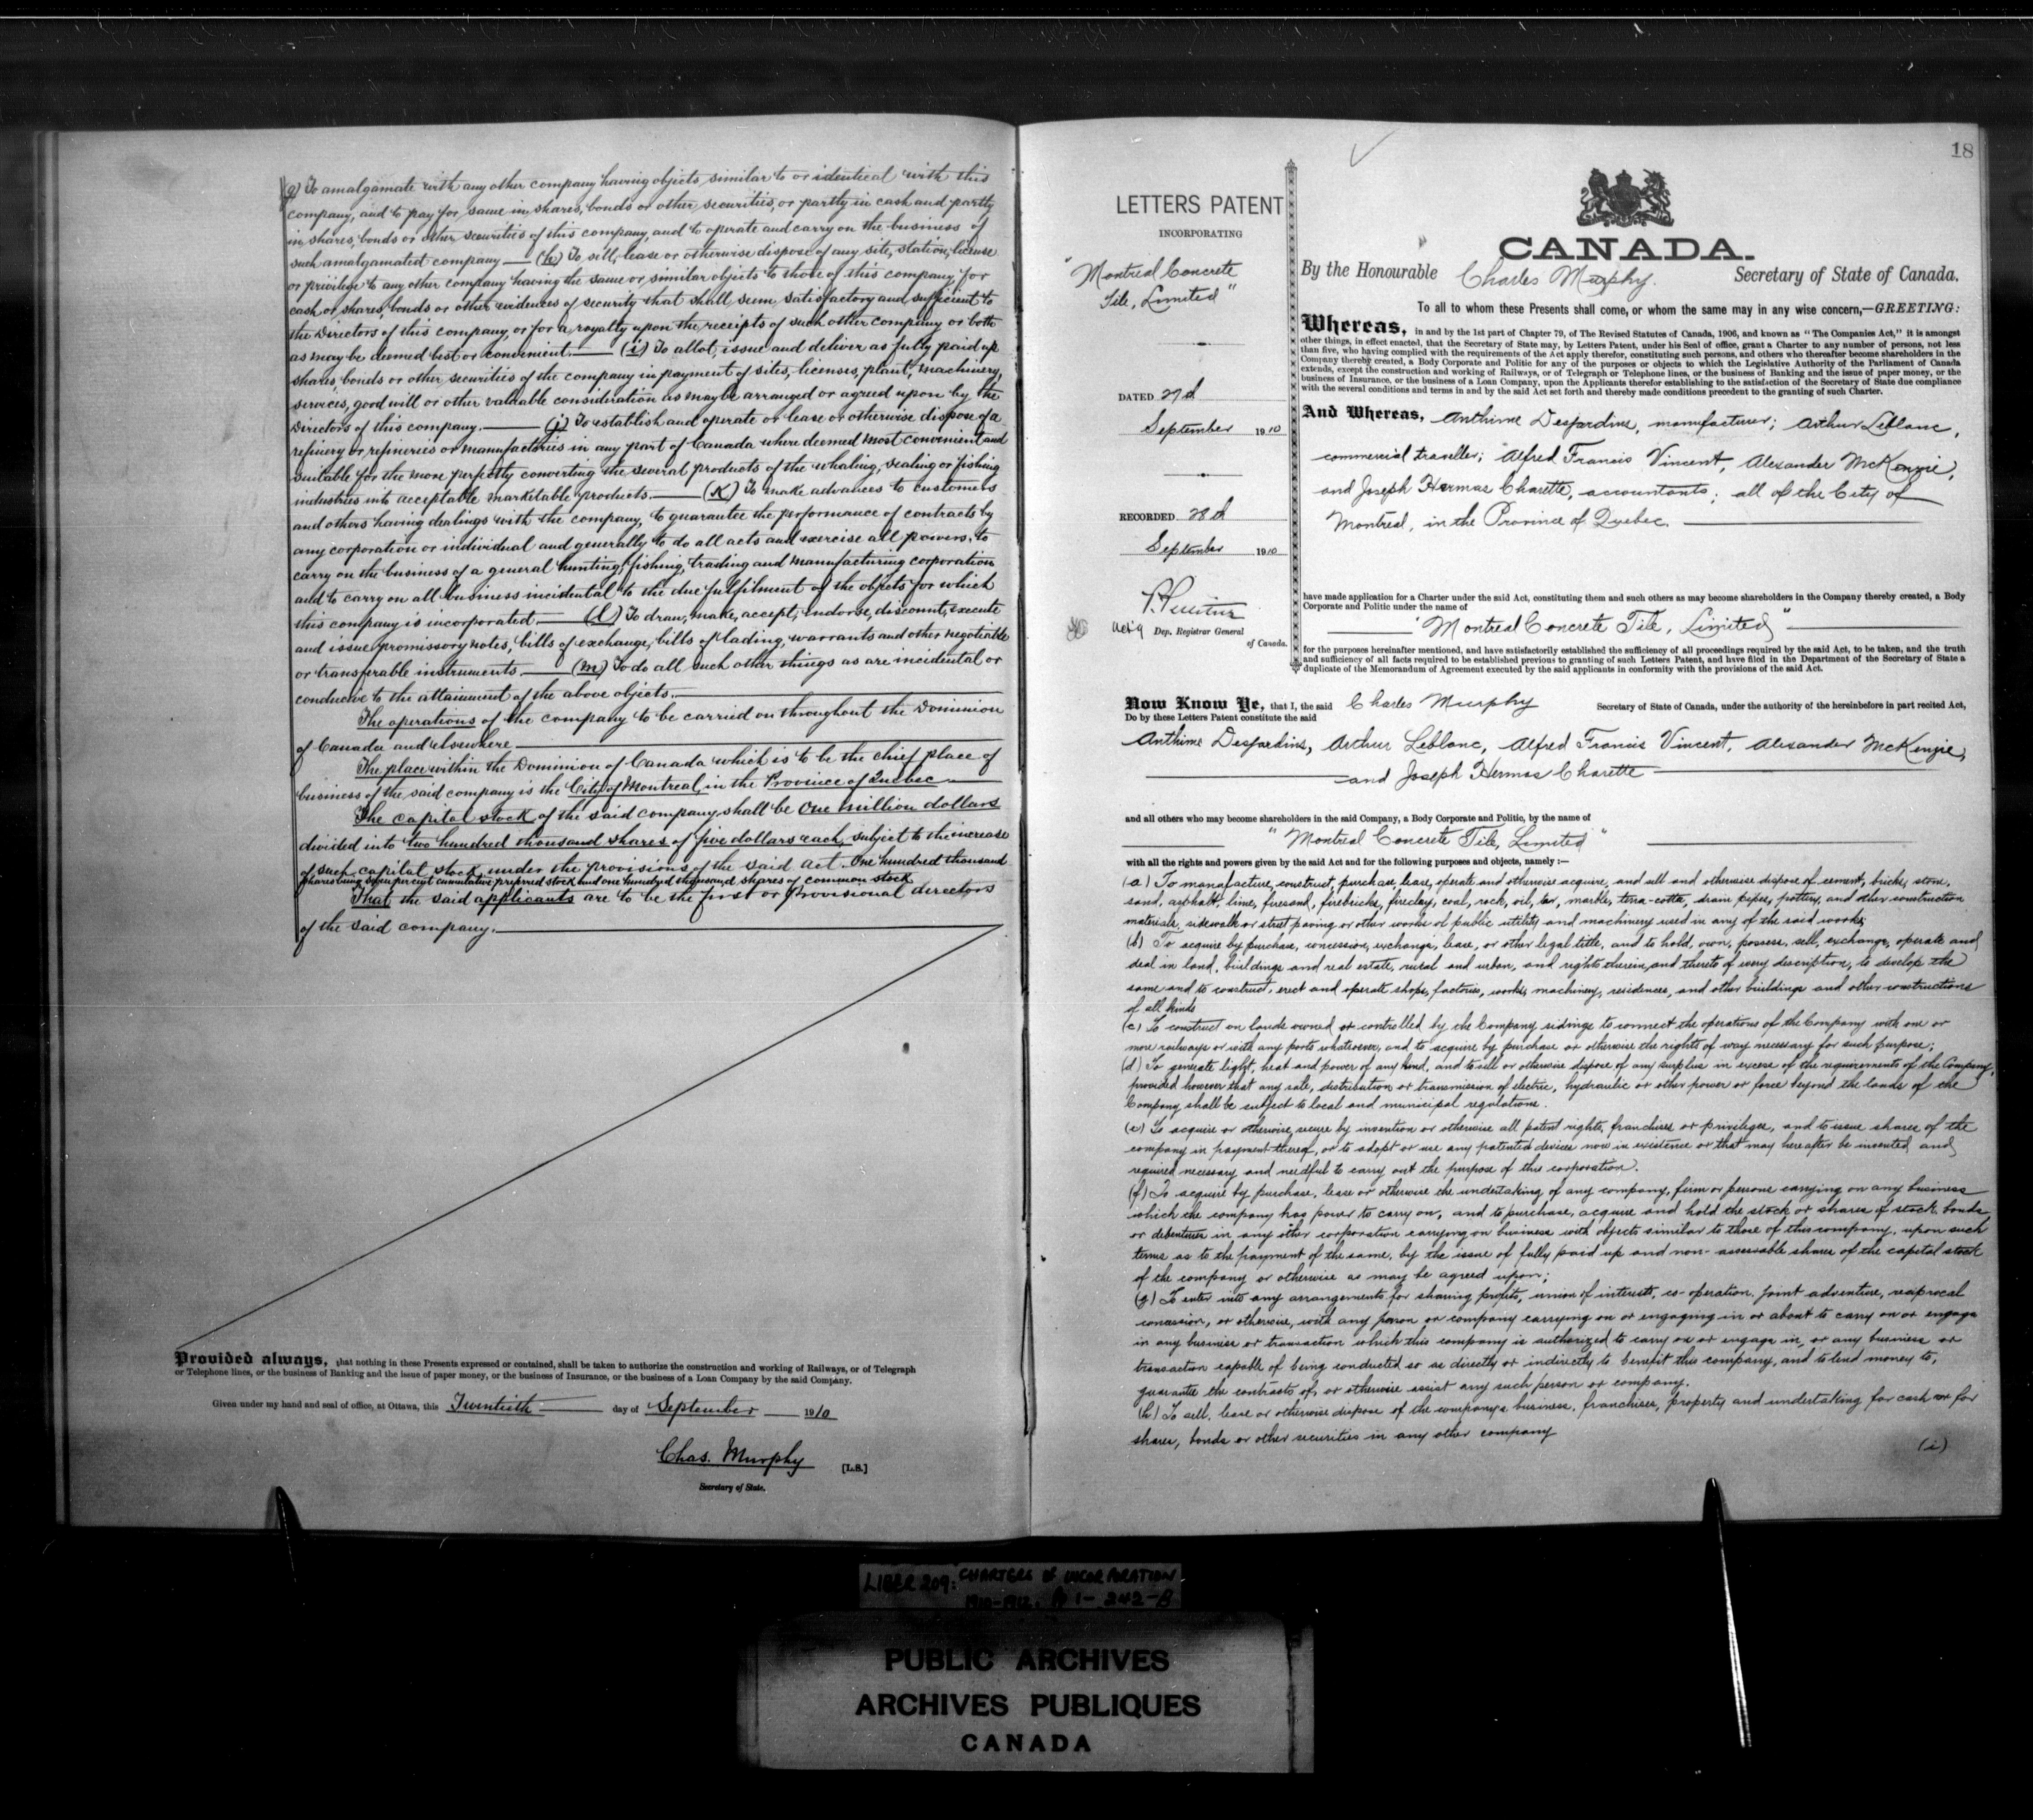 (g) To amalgamate with any other company having objects similar to or identical with this
company, and to pay for same in shares, bonds or other securities, or partly in cash and partly
in shares, bonds or other securities of this company, and to operate and carry on the business of
such amalgamated company — (h) To sell, lease or otherwise dispose of any site, station, license
or privilege to any other company having the same or similar objects to those of this company for
cash or shares, bonds or other evidences of security that shall seem satisfactory and sufficient to
the Directors of this company, or for a royalty upon the receipts of such other company or both
as may be deemed best or convenient. — (i) To allot, issue and deliver as fully paid up
shares, bonds or other securities of the company in payment of sites, licenses, plant, machinery,
services, good will or other valuable consideration as may be arranged or agreed upon by the
Directors of this company. — (j) To establish and operate or lease or otherwise dispose of a
refinery or refineries or manufactories in any part of Canada where deemed most convenient and
suitable for the more perfectly converting the several products of the whaling, sealing or fishing
industries into acceptable marketable products. — (k) To make advances to customers
and others having dealings with the company, to guarantee the performance of contracts by
any corporation or individual and generally to do all acts and exercise all powers, to
carry on the business of a general hunting, fishing, trading and manufacturing corporation
and to carry on all business incidental to the due fulfilment of the objects for which
this company is incorporated. — (l) To draw, make, accept, endorse, discount, execute
and issue promissory notes, bills of exchange, bills of lading, warrants and other negotiable
or transferable instruments. — (m) To do all such other things as are incidental or
conducive to the attainment of the above objects. —
The operations of the company to be carried on throughout the Dominion
of Canada and elsewhere —
The place within the Dominion of Canada which is to be the chief place of
business of the said company is the City of Montreal, in the Province of Quebec —
The capital stock of the said company shall be One million dollars
divided into two hundred thousand shares of five dollars each, subject to the increase
of such capital stock under the provisions of the said act. One hundred thousand
shares being seven per cent cumulative preferred stock and one hundred thousand shares of common stock
That the said applicants are to be the first or Provisional directors
of the said company. —
Provided always, that nothing in these Presents expressed or contained, shall be taken to authorize the construction and working of Railways, or of Telegraph
or Telephone lines, or the business of Banking and the issue of paper money, or the business of Insurance, or the business of a Loan Company by the said Company.
Given under my hand and seal of office, at Ottawa, this Twentieth day of September 1910
Chas. Murphy [L.S.]
Secretary of State.
18
LETTERS PATENT
INCORPORATING
"Montreal Concrete
Tile, Limited"
DATED 27th
September 1910
RECORDED 28th
September 1910
Act'g Dep. Registrar General
of Canada.
CANADA.
By the Honourable Charles Murphy. Secretary of State of Canada.
To all to whom these Presents shall come, or whom the same may in any wise concern,—GREETING:
Whereas, in and by the 1st part of Chapter 79, of The Revised Statutes of Canada, 1906, and known as "The Companies Act," it is amongst
other things, in effect enacted, that the Secretary of State may, by Letters Patent, under his Seal of office, grant a Charter to any number of persons, not less
than five, who having complied with the requirements of the Act apply therefor, constituting such persons, and others who thereafter become shareholders in the
Company thereby created, a Body Corporate and Politic for any of the purposes or objects to which the Legislative Authority of the Parliament of Canada
extends, except the construction and working of Railways, or of Telegraph or Telephone lines, or the business of Banking and the issue of paper money, or the
business of Insurance, or the business of a Loan Company, upon the Applicants therefor establishing to the satisfaction of the Secretary of State due compliance
with the several conditions and terms in and by the said Act set forth and thereby made conditions precedent to the granting of such Charter.
And Whereas, Anthime Desjardins, manufacturer; Arthur Leblanc,
commercial traveller; Alfred Francis Vincent, Alexander McKenzie,
and Joseph Hermas Charette, accountants; all of the City of
Montreal, in the Province of Quebec. —
have made application for a Charter under the said Act, constituting them and such others as may become shareholders in the Company thereby created, a Body
Corporate and Politic under the name of
"Montreal Concrete Tile, Limited"
for the purposes hereinafter mentioned, and have satisfactorily established the sufficiency of all proceedings required by the said Act, to be taken, and the truth
and sufficiency of all facts required to be established previous to granting of such Letters Patent, and have filed in the Department of the Secretary of State a
duplicate of the Memorandum of Agreement executed by the said applicants in conformity with the provisions of the said Act.
Now Know Ye, that I, the said Charles Murphy Secretary of State of Canada, under the authority of the hereinbefore in part recited Act,
Do by these Letters Patent constitute the said
Anthime Desjardins, Arthur Leblanc, Alfred Francis Vincent, Alexander McKenzie,
— and Joseph Hermas Charette —
and all others who may become shareholders in the said Company, a Body Corporate and Politic, by the name of
"Montreal Concrete Tile, Limited"
with all the rights and powers given by the said Act and for the following purposes and objects, namely :—
(a) To manufacture, construct, purchase, lease, operate and otherwise acquire, and sell and otherwise dispose of cement, bricks, stone,
sand, asphalt, lime, firesand, firebricks, fireclay, coal, rock, oil, tar, marble, terra-cotta, drain pipes, pottery, and other construction
materials, sidewalk or street paving or other works of public utility and machinery used in any of the said works;
(b) To acquire by purchase, concession, exchange, lease, or other legal title, and to hold, own, possess, sell, exchange, operate and
deal in land, buildings and real estate, rural and urban, and rights therein, and thereto of every description, to develop the
same and to construct, erect and operate shops, factories, works, machinery, residences, and other buildings and other constructions
of all kinds
(c) To construct on lands owned or controlled by the Company sidings to connect the operations of the Company with one or
more railways or with any ports whatsoever, and to acquire by purchase or otherwise the rights of way necessary for such purpose;
(d) To generate light, heat and power of any kind, and to sell or otherwise dispose of any surplus in excess of the requirements of the Company,
provided however that any sale, distribution or transmission of electric, hydraulic or other power or force beyond the lands of the
Company shall be subject to local and municipal regulations.
(e) To acquire or otherwise secure by invention or otherwise all patent rights, franchises or privileges, and to issue shares of the
company in payment thereof, or to adopt or use any patented devices now in existence or that may hereafter be invented and
required necessary and needful to carry out the purpose of this corporation.
(f) To acquire by purchase, lease or otherwise the undertaking of any company, firm or persons carrying on any business
which the company has power to carry on, and to purchase, acquire and hold the stock or shares of stock, bonds
or debentures in any other corporation carrying on business with objects similar to those of this company, upon such
terms as to the payment of the same, by the issue of fully paid up and non-assessable shares of the capital stock
of the company or otherwise as may be agreed upon;
(g) To enter into any arrangements for sharing profits, union of interests, co-operation, joint adventure, reciprocal
concession, or otherwise, with any person or company carrying on or engaging in or about to carry on or engage
in any business or transaction which this company is authorized to carry on or engage in, or any business or
transaction capable of being conducted so as directly or indirectly to benefit this company, and to lend money to,
guarantee the contracts of, or otherwise assist any such person or company.
(h) To sell, lease or otherwise dispose of the company's business, franchises, property and undertaking for cash or for
shares, bonds or other securities in any other company
(i)
LIBER 209: CHARTERS OF INCORPORATION
1910-1912. P 1-242-B
PUBLIC ARCHIVES
ARCHIVES PUBLIQUES
CANADA